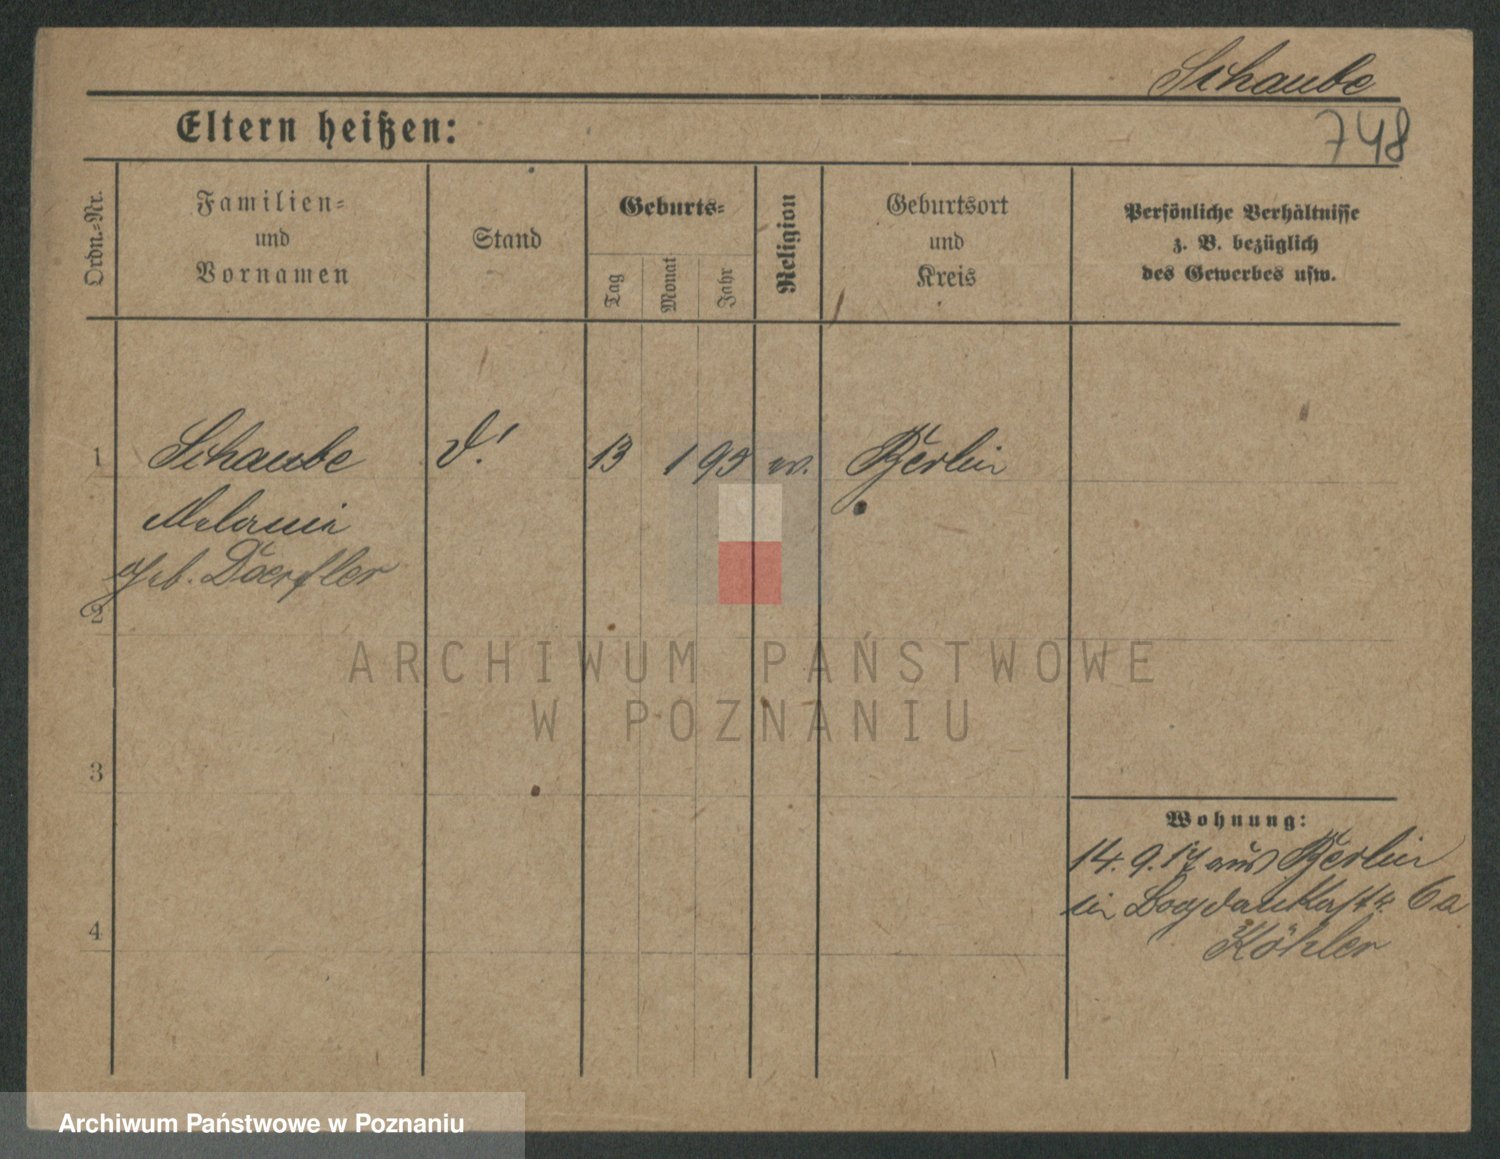 Schaube
Eltern heißen:
748
Ordn.-Nr.
Familien-
und
Vornamen
Stand
Geburts-
Tag
Monat
Jahr
Religion
Geburtsort
und
Kreis
Persönliche Verhältnisse
z. B. bezüglich
des Gewerbes usw.
1 Schaube 13 1 95 ev. Berlin
Melanie
geb. Doerfler
2
ARCHIWUM PAŃSTWOWE
W POZNANIU
3
Wohnung:
14. 9. 17 aus Berlin
Bogdankastr. 6a
4
Köhler
Archiwum Państwowe w Poznaniu